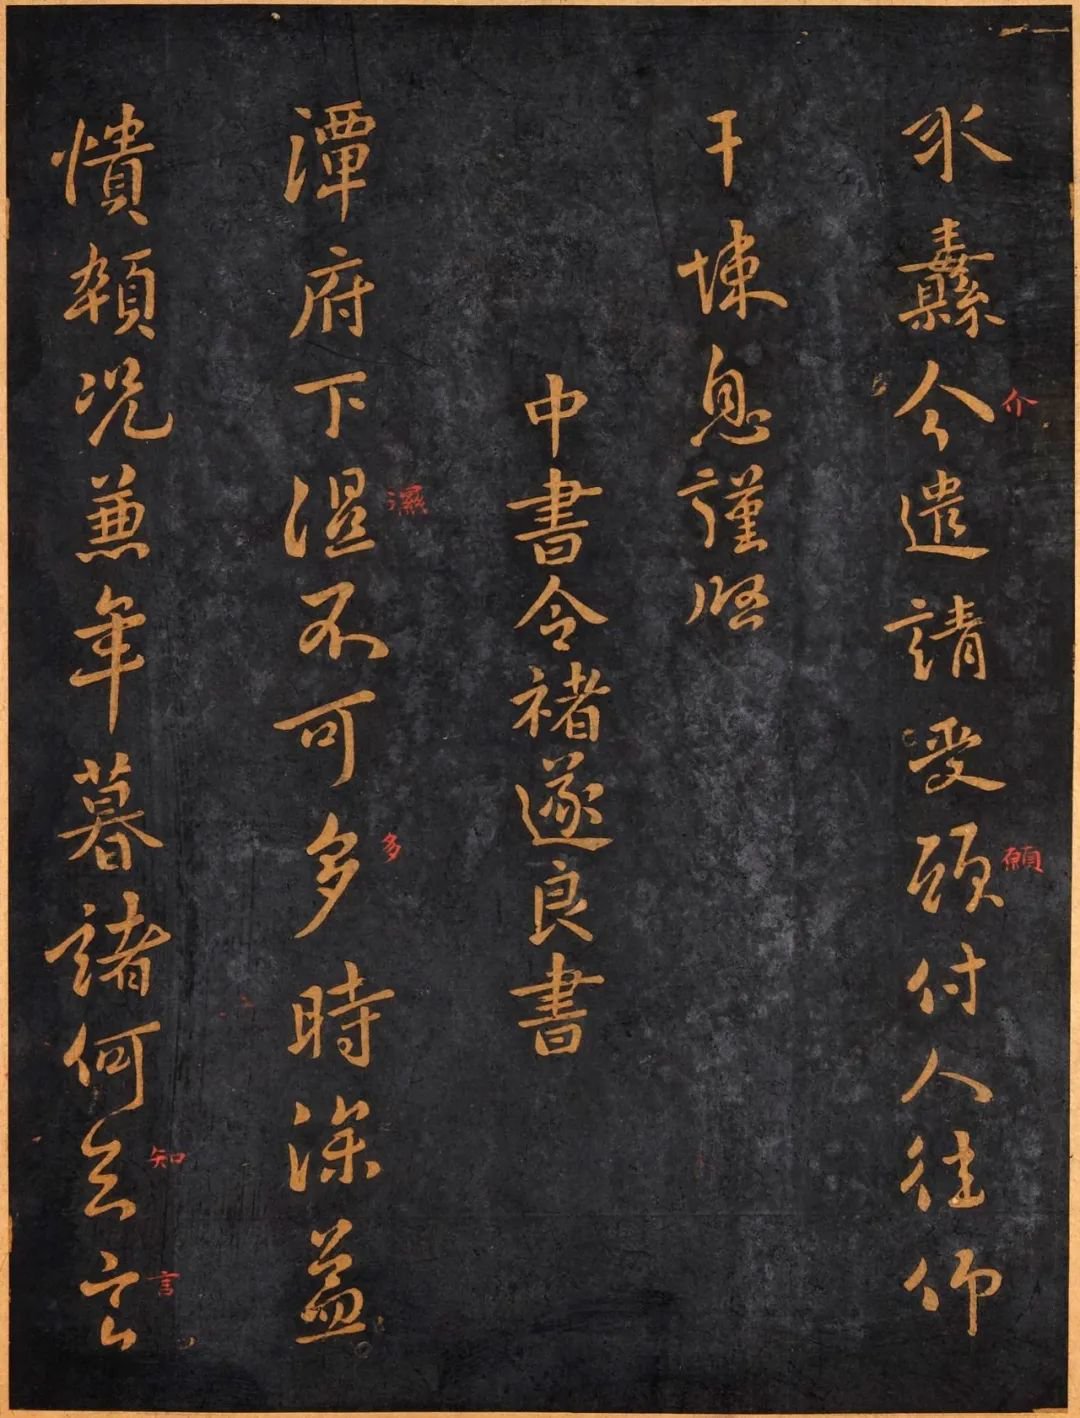 水纛今遣請受願付人往仰
介
願
干悚息謹啓
中書令褚遂良書
潭府下濕不可多時深益
濕
多
憒顇況兼年暮諸何知言
知
言